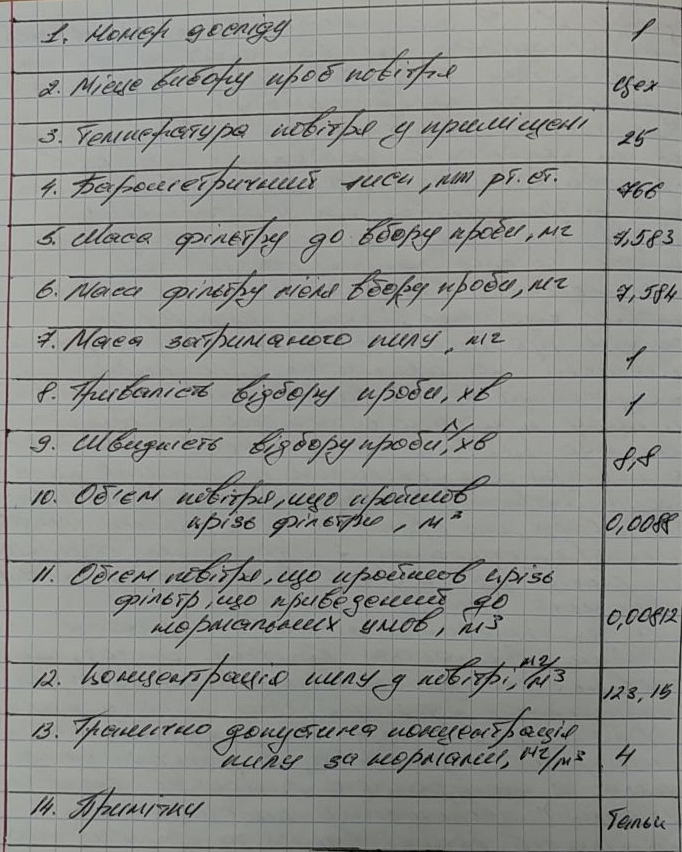 1. Номер досліду 1
2. Місце вибору проб повітря цех
3. Температура повітря у приміщені 25
4. Барометричний тиск, мм рт. ст. 766
5. Маса фільтру до вбору проби, мг 7,583
6. Маса фільтру після вбору проби, мг 7,584
7. Маса затриманого пилу, мг 1
8. Тривалість відбору проби, хв 1
9. Швидкість відбору проби, л/хв 8,8
10. Об'єм повітря, що пройшов
крізь фільтр, м³ 0,0088
11. Об'єм повітря, що пройшов крізь
фільтр, що приведений до
нормальних умов, м³ 0,00812
12. Концентрація пилу у повітрі, мг/м³ 123,15
13. Гранично допустима концентрація
пилу за нормами, мг/м³ 4
14. Примітки Тальк